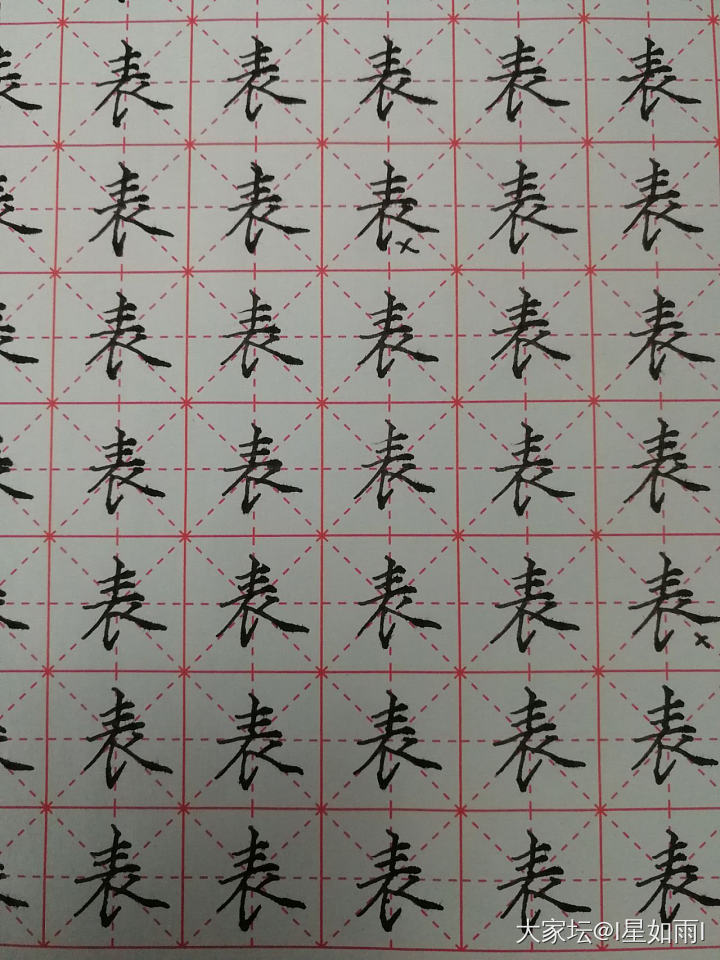 表表表表表
表表表×表表
表表表表表
表表表表表
表表表表表×
表表表表表
表表表表表
大家坛@I星如雨I